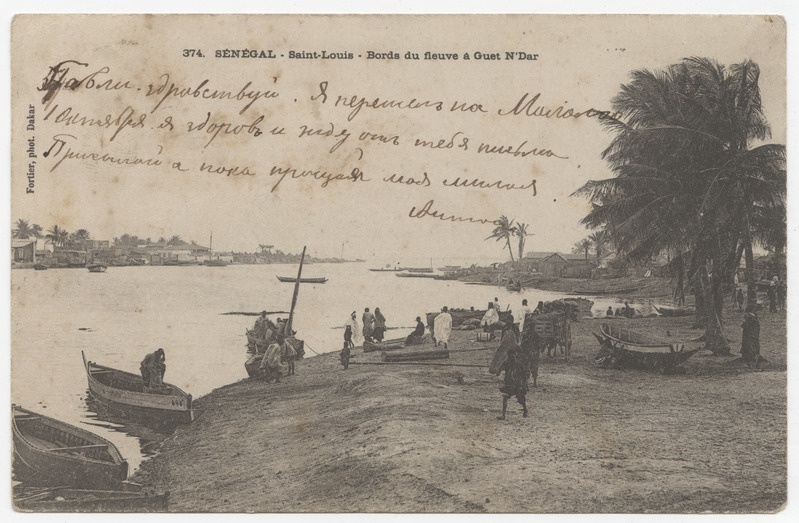 374. SÉNÉGAL - Saint-Louis - Bords du fleuve à Guet N'Dar
Fortier, phot. Dakar
здравствуй. Я перешелъ на
1 Октября я здоровъ и жду отъ тебя письма
а пока прощай моя милая